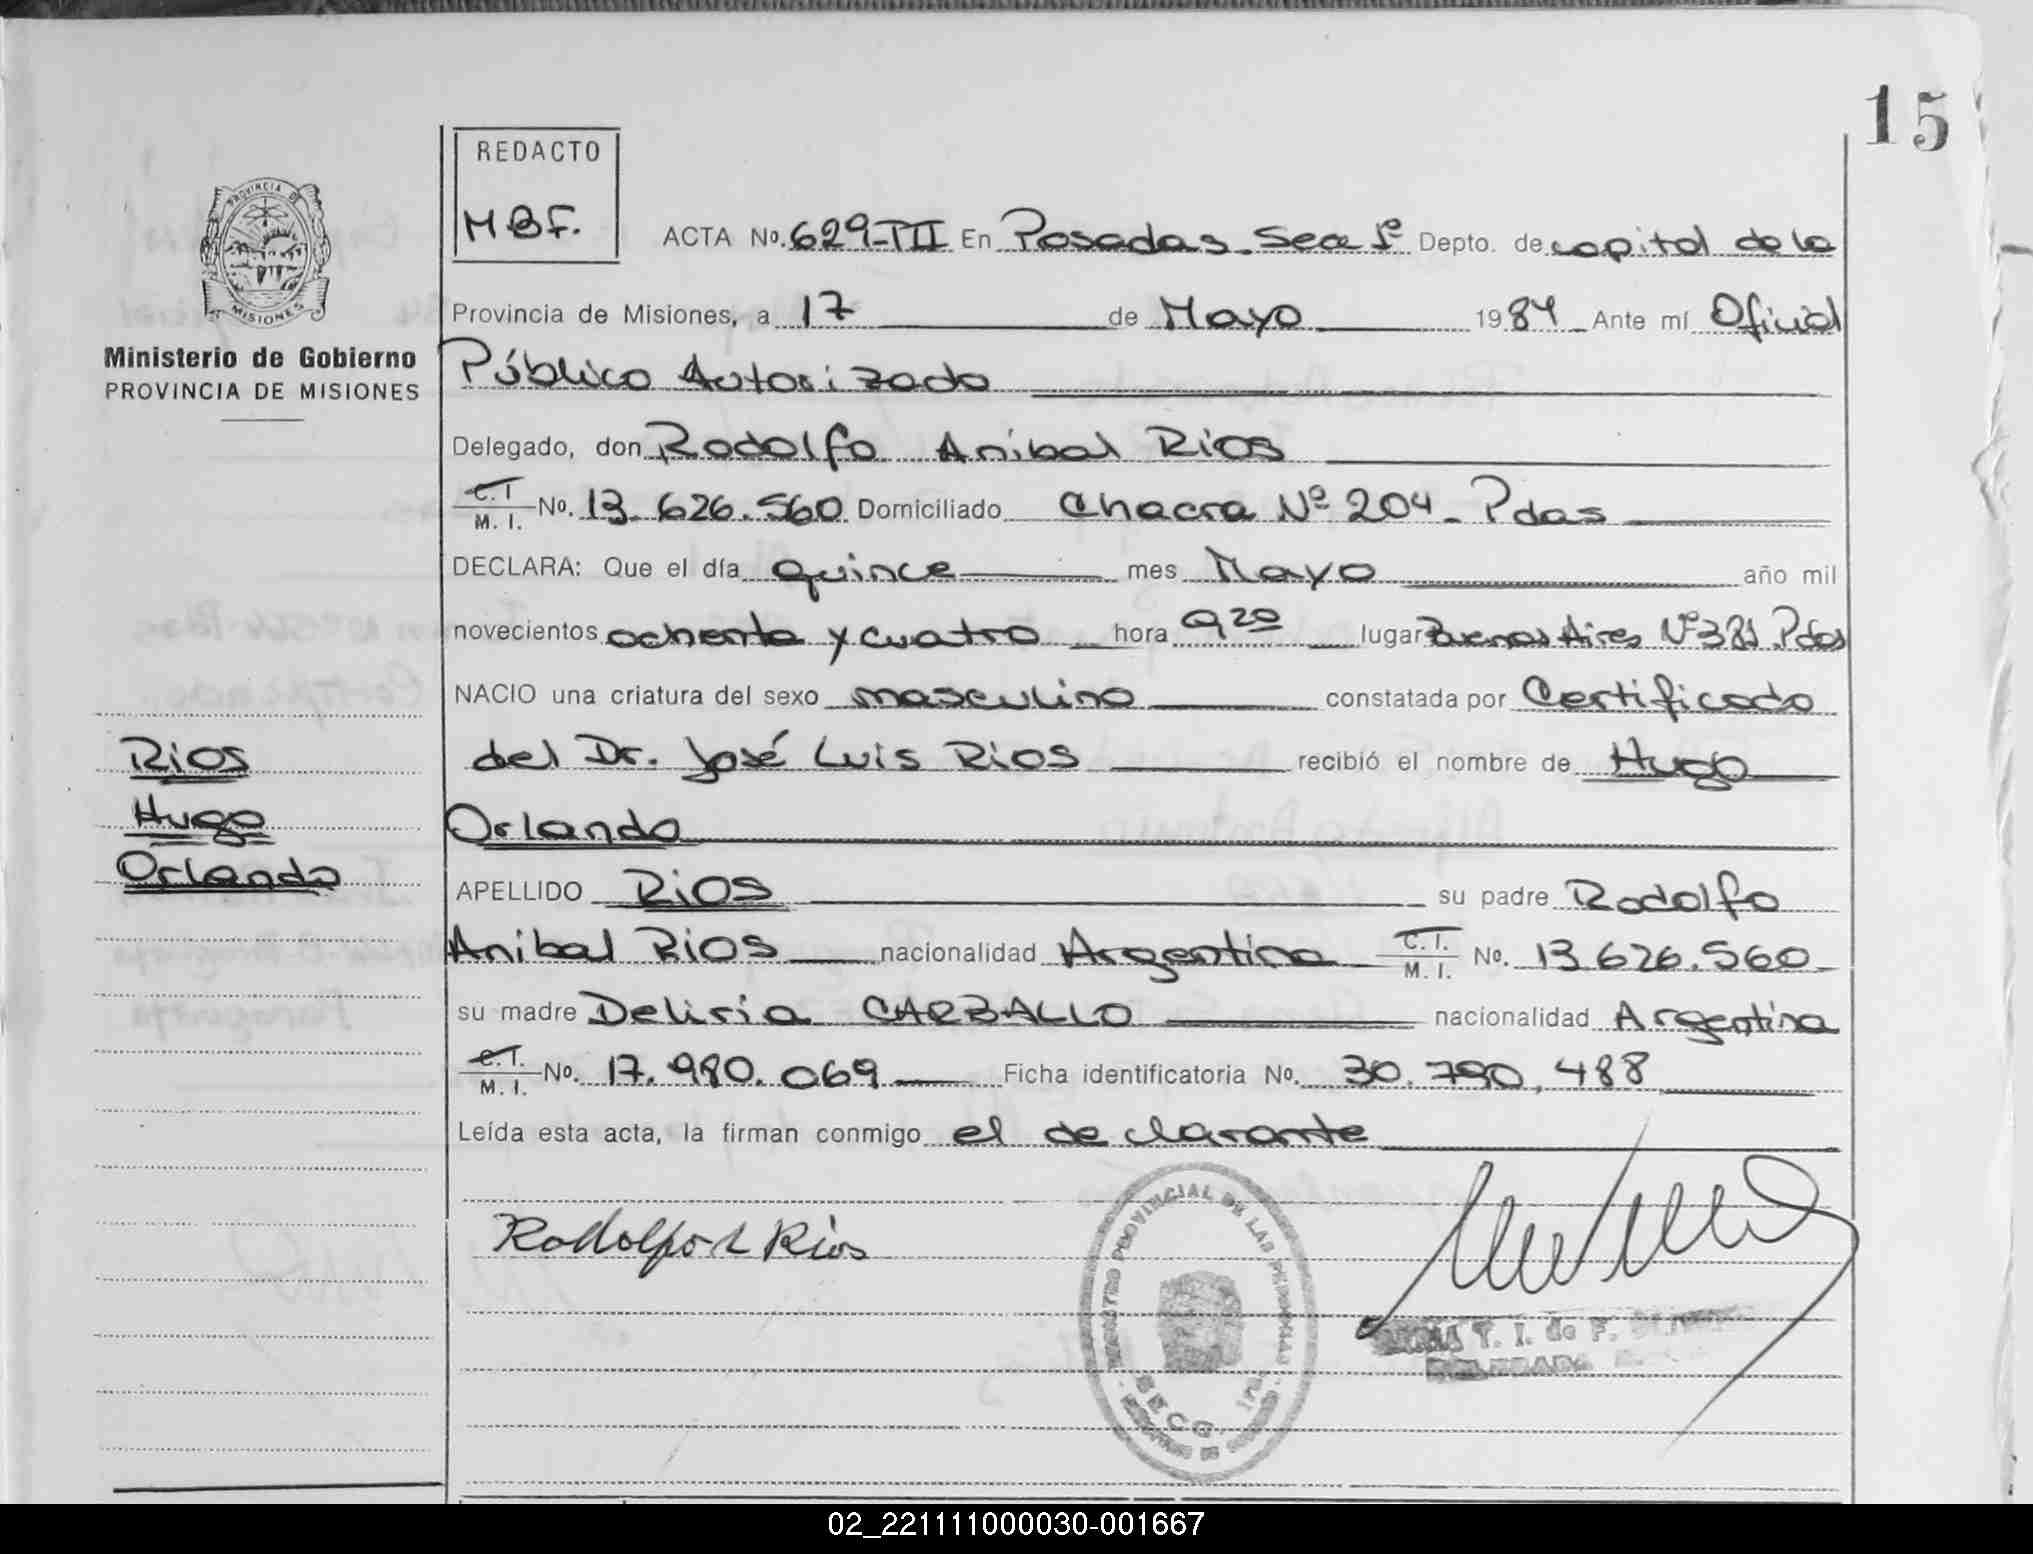 15
REDACTO
MBF.
PROVINCIA DE
MISIONES
Ministerio de Gobierno
PROVINCIA DE MISIONES
ACTA No. 629-TII En Posadas - Sec 1º Depto. de capital de la
Provincia de Misiones, a 17 de Mayo 1984 Ante mí Oficial
Público Autorizado
Delegado, don Rodolfo Anibal Rios
C.I. M. I. No. 13.626.560 Domiciliado Chacra Nº 204 - Pdas
DECLARA: Que el día quince mes Mayo año mil
novecientos ochenta y cuatro hora 9 20 lugar Buenos Aires Nº 381 Pdas
NACIO una criatura del sexo masculino constatada por Certificado
del Dr. José Luis Rios recibió el nombre de Hugo
Orlando
Rios
Hugo
Orlando
APELLIDO Rios su padre Rodolfo
Anibal Rios nacionalidad Argentina C.I. M.I. No. 13.626.560
su madre Deliria CARBALLO nacionalidad Argentina
C.I. M. I. No. 17.980.069 Ficha identificatoria No. 30.790.488
Leída esta acta, la firman conmigo el declarante
Rodolfo A Rios
REGISTRO PROVINCIAL DE LAS PERSONAS
SECC. 1ra
T. I. de F.
DELEGADA
02_221111000030-001667